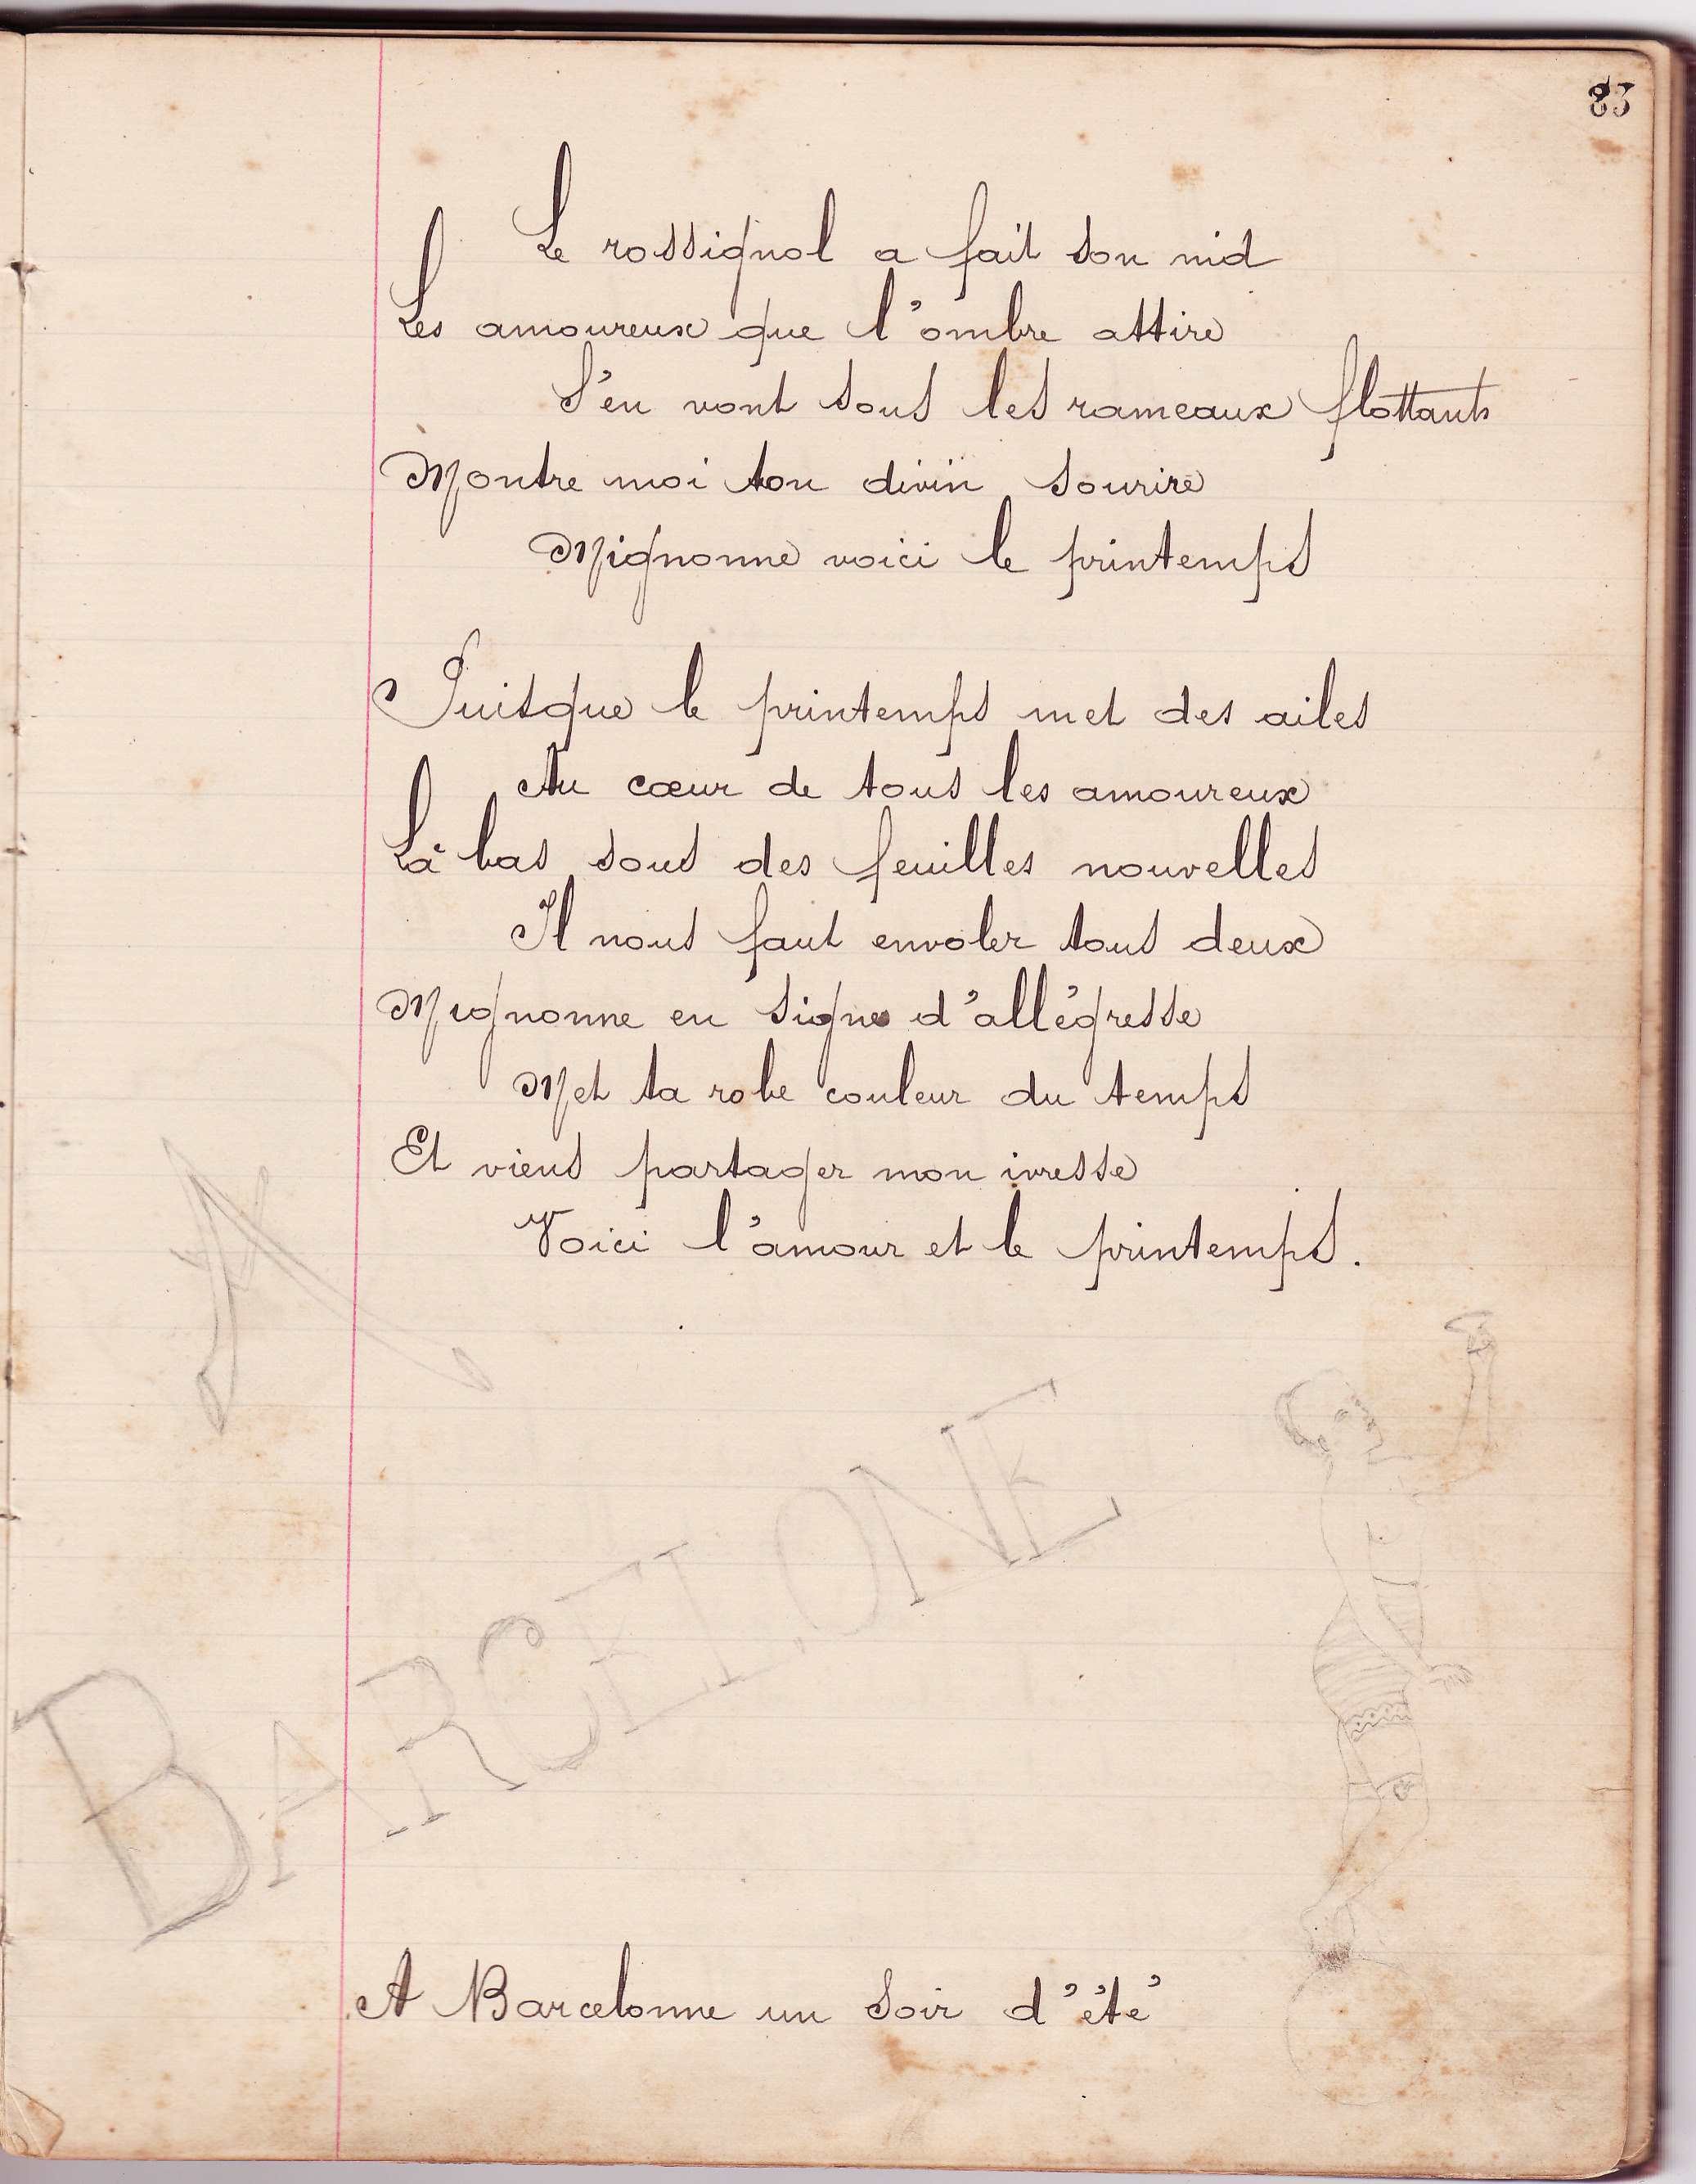 83
Le rossignol a fait son nid
Les amoureux que l'ombre attire
S'en vont sous les rameaux flottants
Montre moi ton divin sourire
Mignonne voici le printemps
Puisque le printemps met des ailes
Au cœur de tous les amoureux
Là bas sous des feuilles nouvelles
Il nous faut envoler tous deux
Mignonne en signe d'allégresse
Met ta robe couleur du temps
Et viens partager mon ivresse
Voici l'amour et le printemps.
A
BARCELONE
A Barcelonne un soir d'été